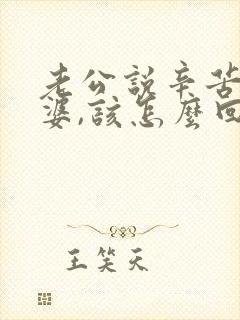 老公説辛苦
婆,該怎麼回
王笑天